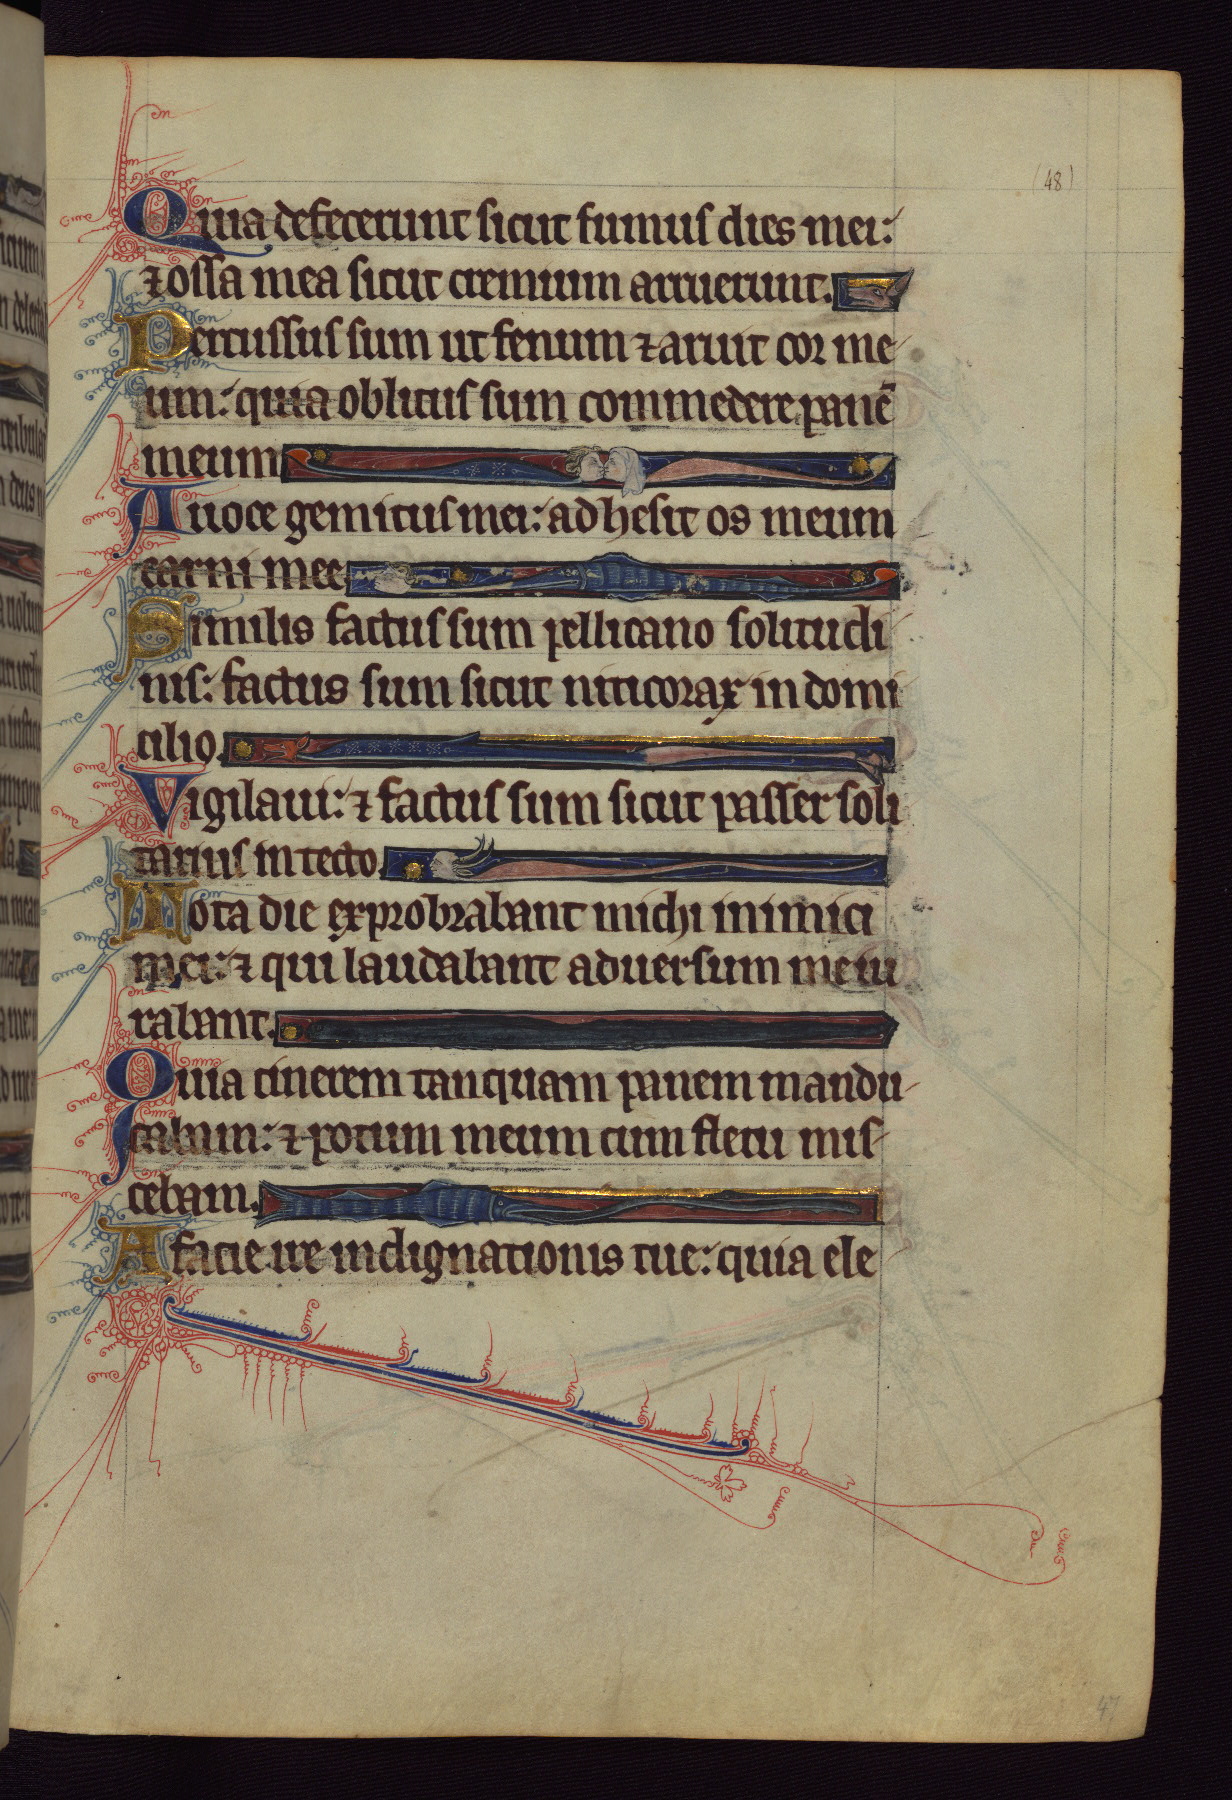 (48)
Quia defecerunt sicut fumus dies mei:
⁊ ossa mea sicut cremium arruerunt.
Percussus sum ut fenum ⁊ aruit cor me
um: quia oblitus sum commedere panē
meum
A uoce gemitus mei: adhesit os meum
carni mee
Similis factus sum pellicano solitudi
nis: factus sum sicut niticorax in domi
cilio.
Vigilaui: ⁊ factus sum sicut passer soli
tarius in tecto
Tota die exprobrabant michi inimici
mei: ⁊ qui laudabant aduersum me iu
rabant.
Quia cinerem tanquam panem mandu
cabam: ⁊ potum meum cum fletu mis
cebam.
A facie ire indignationis tue: quia ele
47